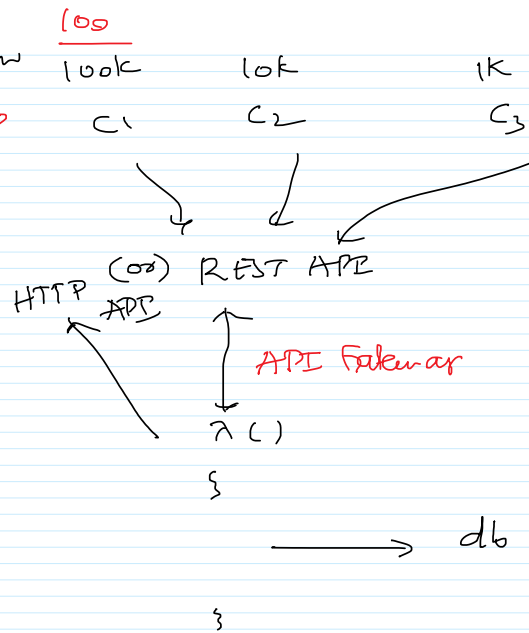 100
100K 10K 1K
C1 C2 C3
HTTP API (or) REST API
API Gateway
λ ( )
{
db
}